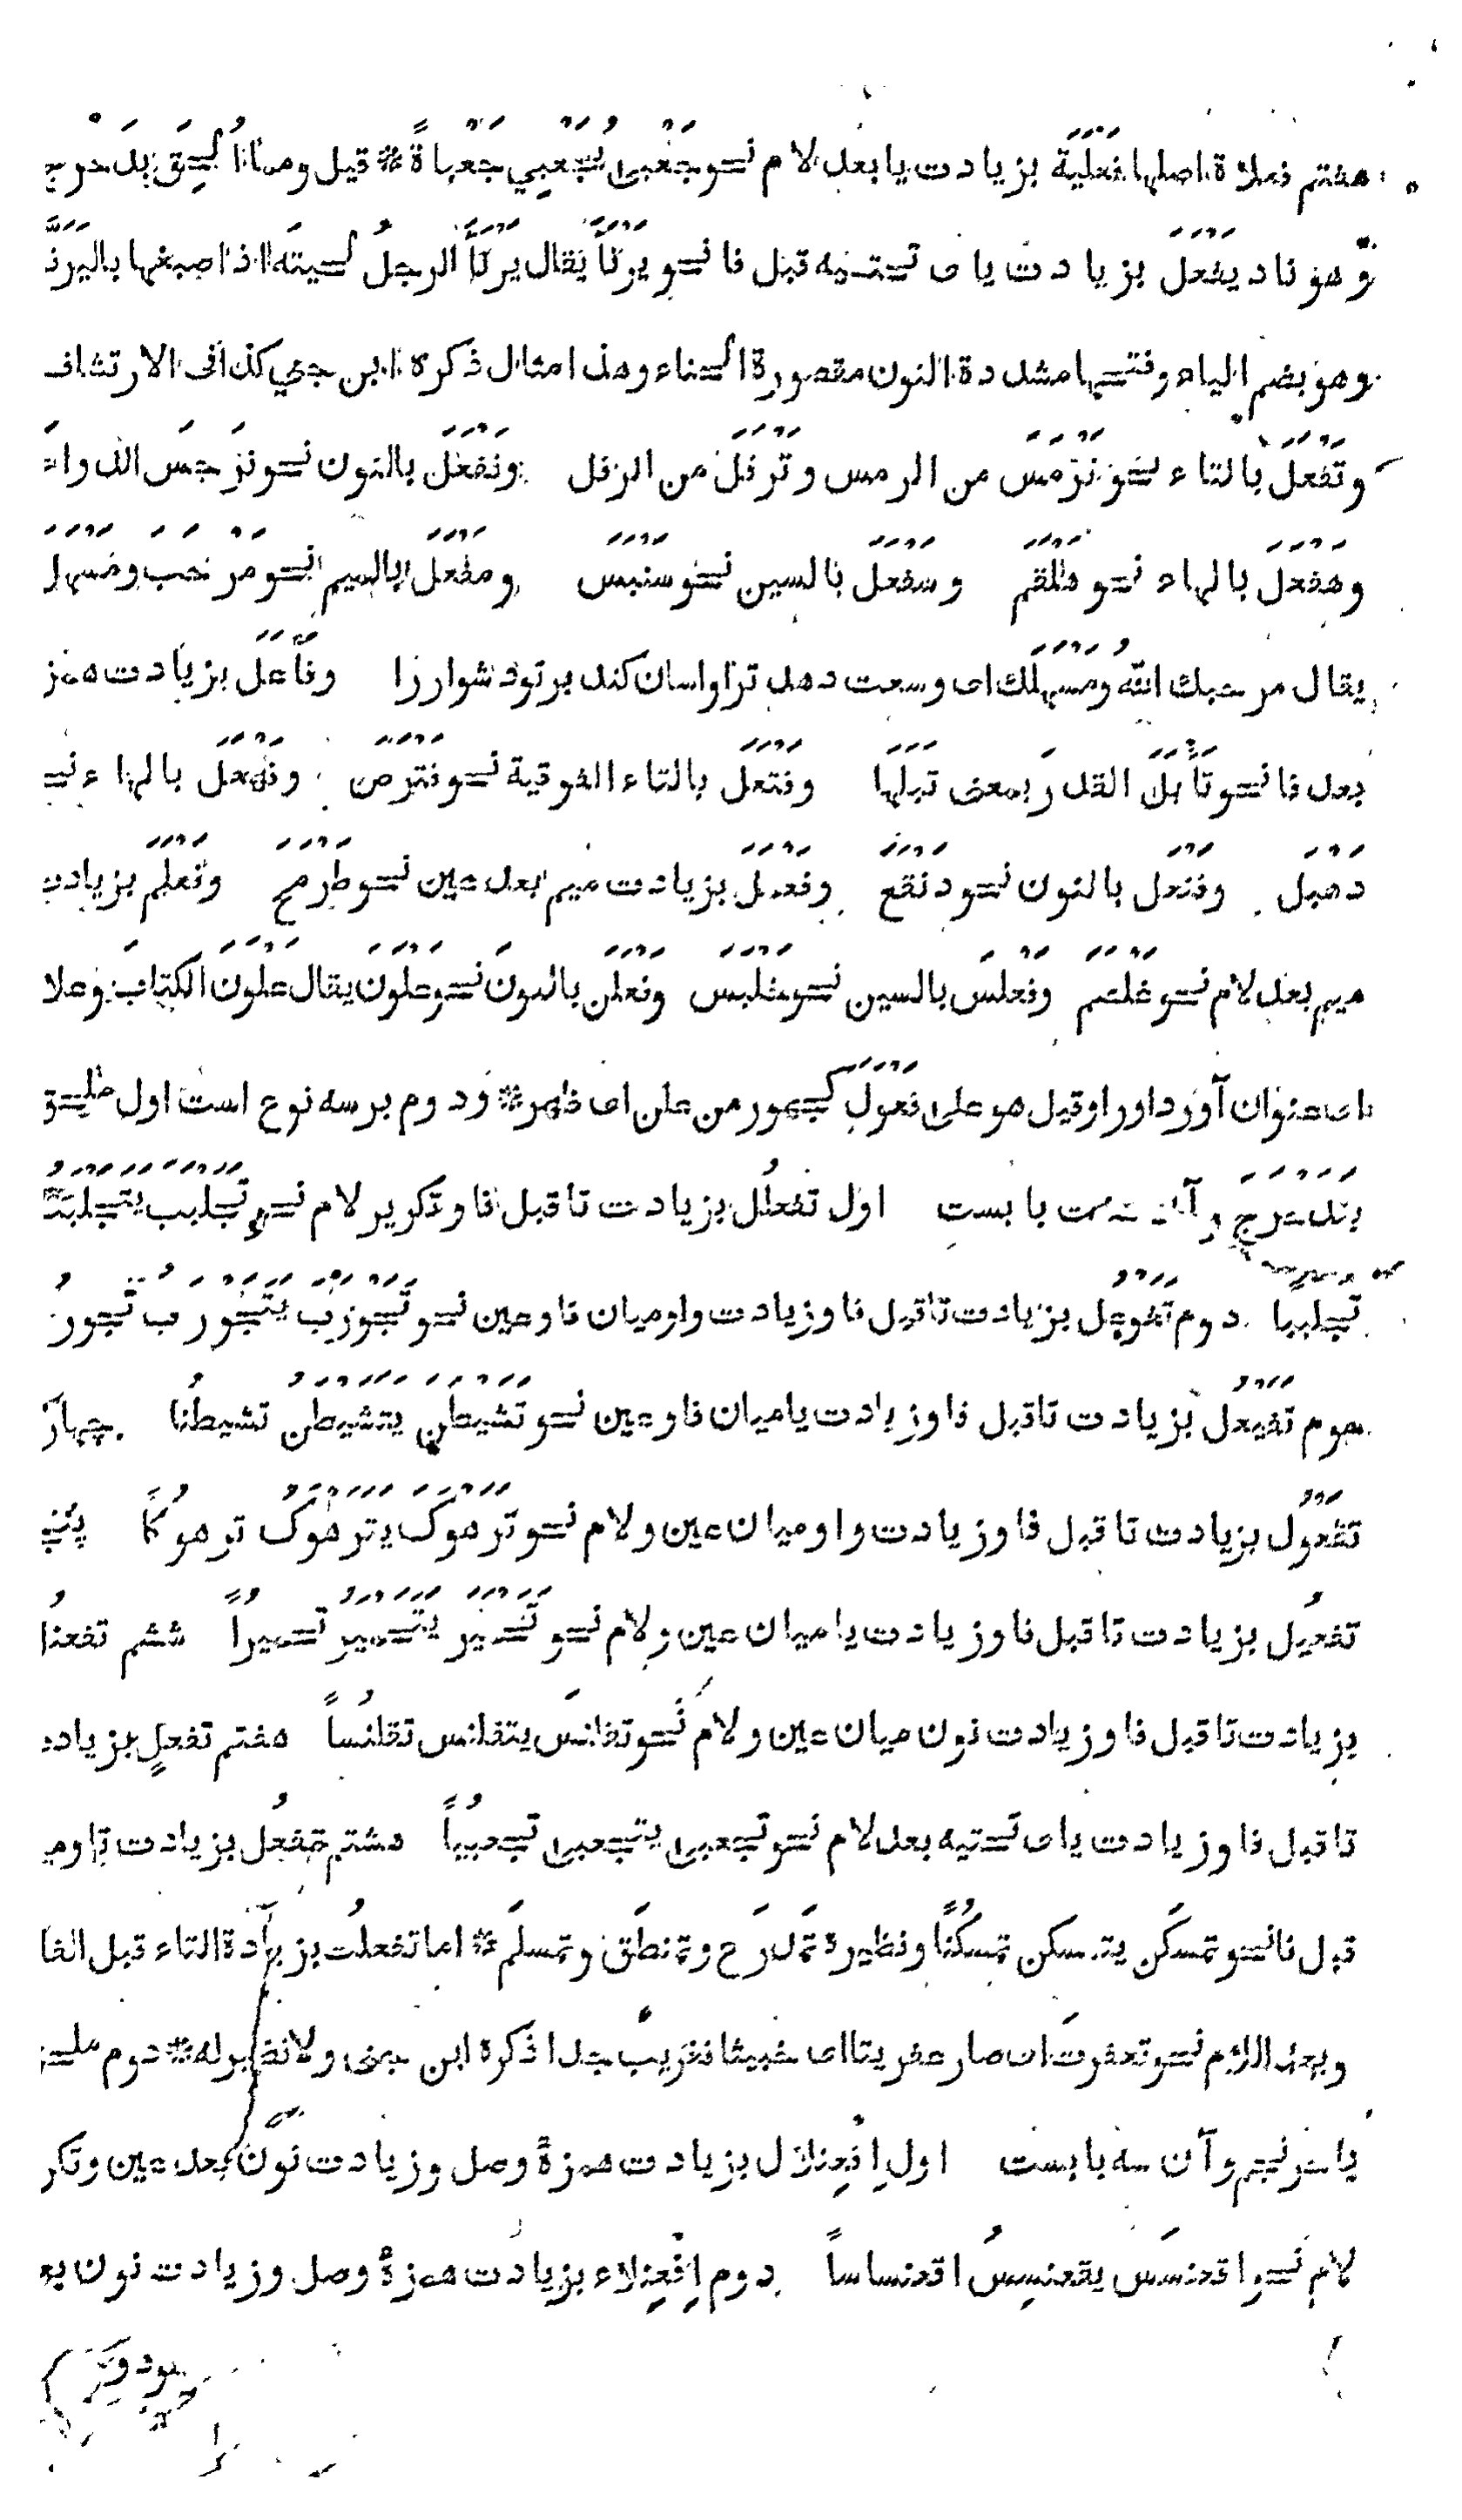 هفتم فعلاة اصلها فَعْلَيَة بزيادت يا بعد لام نحو جَعْبىٰ يُجَعْبِي جَعْبَاةً * قيل ومما اُلحِق بدحرج
وهو نادر يَفْعَلَ بزيادت ياى تحتيه قبل فا نحو يَرْنَأَ يقال يَرْنَأَ الرجلُ لحيتَه اذا صبغها باليرنّا
وهو بضم الياء وفتحها مشددة النون مقصورة الحناء وهذا مثال ذكره ابن جني كذا فى الارتشاف
وتَفْعَلَ بالتاء نحو تَرْمَسَ من الرمس وتَرْفَلَ من الرفل ونَفْعَلَ بالنون نحو نَرْجَسَ الدواء
وهَفْعَلَ بالهاء نحو هَلْقَمَ وسَفْعَلَ بالسين نحو سَنْبَسَ ومَفْعَلَ بالميم نحو مَرْحَبَ ومَسْهَلَ
يقال مرحبك اللّٰه ومَسْهَلَك اى وسعت دهد ترا واسان كند بر تو دشوار را وفَأْعَلَ بزيادت همزه
بعد فا نحو تَأْبَلَ القدرَ بمعنى تبلها وفَتْعَلَ بالتاء الفوقية نحو فَتْرَصَ وفَهْعَلَ بالهاء نحو
دَهْبَلَ وفَنْعَلَ بالنون نحو دَنْقَعَ وفَعْمَلَ بزيادت ميم بعد عين نحو طَرْمَحَ وفَعْلَمَ بزيادت
ميم بعد لام نحو غَلْصَمَ وفَعْلَسَ بالسين نحو خَلْبَسَ وفَعْلَنَ بالنون نحو عَلْوَنَ يقال عَلْوَنَ الكتابَ وعلا
اى عنوان آورد او را وقيل هو على فَعْوَلَ كجهور من علن اى ظهر * ودوم بر سه نوع است اول ملحق
بتَدَحْرَجَ وآن هشت بابست اول تفعلُل بزيادت تا قبل فا وتكرير لام نحو تَجَلْبَبَ يَتَجَلْبَبُ
تجلببا دوم تَفَوْعُل بزيادت تا قبل فا وزيادت واو ميان فا وعين نحو تَجَوْرَبَ يَتَجَوْرَبُ تجورُ
سوم تَفَيْعُل بزيادت تا قبل فا وزيادت يا ميان فا وعين نحو تَشَيْطَنَ يَتَشَيْطَنُ تشيطُنا چهارم
تَفَعْوُل بزيادت تا قبل فا وزيادت واو ميان عين ولام نحو تَرَهْوَكَ يَتَرَهْوَكُ ترهوُكاً پنجم
تفعيُل بزيادت تا قبل فا وزيادت يا ميان عين ولام نحو يَتَحَمْيَرُ تحميُراً ششم تفعنُل
بزيادت تا قبل فا وزيادت نون ميان عين ولام نحو تقلنسَ يتقلنس تقلنُساً هفتم تفعلٍ بزيادت
تا قبل فا وزيادت ياى تحتيه بعد لام نحو تجعبىٰ يتجعبىٰ تجعبُياً هشتم تمفعُل بزيادت تا وميم
قبل فا نحو تمسكَن يتمسكن تمسكُنًا ونظيره تمدرَع وتمنطَق وتمسلَم * اما تفعلُت بزيادة التاء قبل الفا
وبعد اللام نحو تعفرتَ اى صار عفريتا اى خبيثا فغريبٌ جدا ذكره ابن جنى ولا نظير له * دوم ملحق
باحرنجم وآن سه بابست اول اِفْعِنلال بزيادت همزهٔ وصل وزيادت نون بعد عين وتكرير
لام نحو اقعنسَس يقعنسِسُ اقعنساساً دوم اِفْعِنلاء بزيادت همزهٔ وصل وزيادت نون بعد